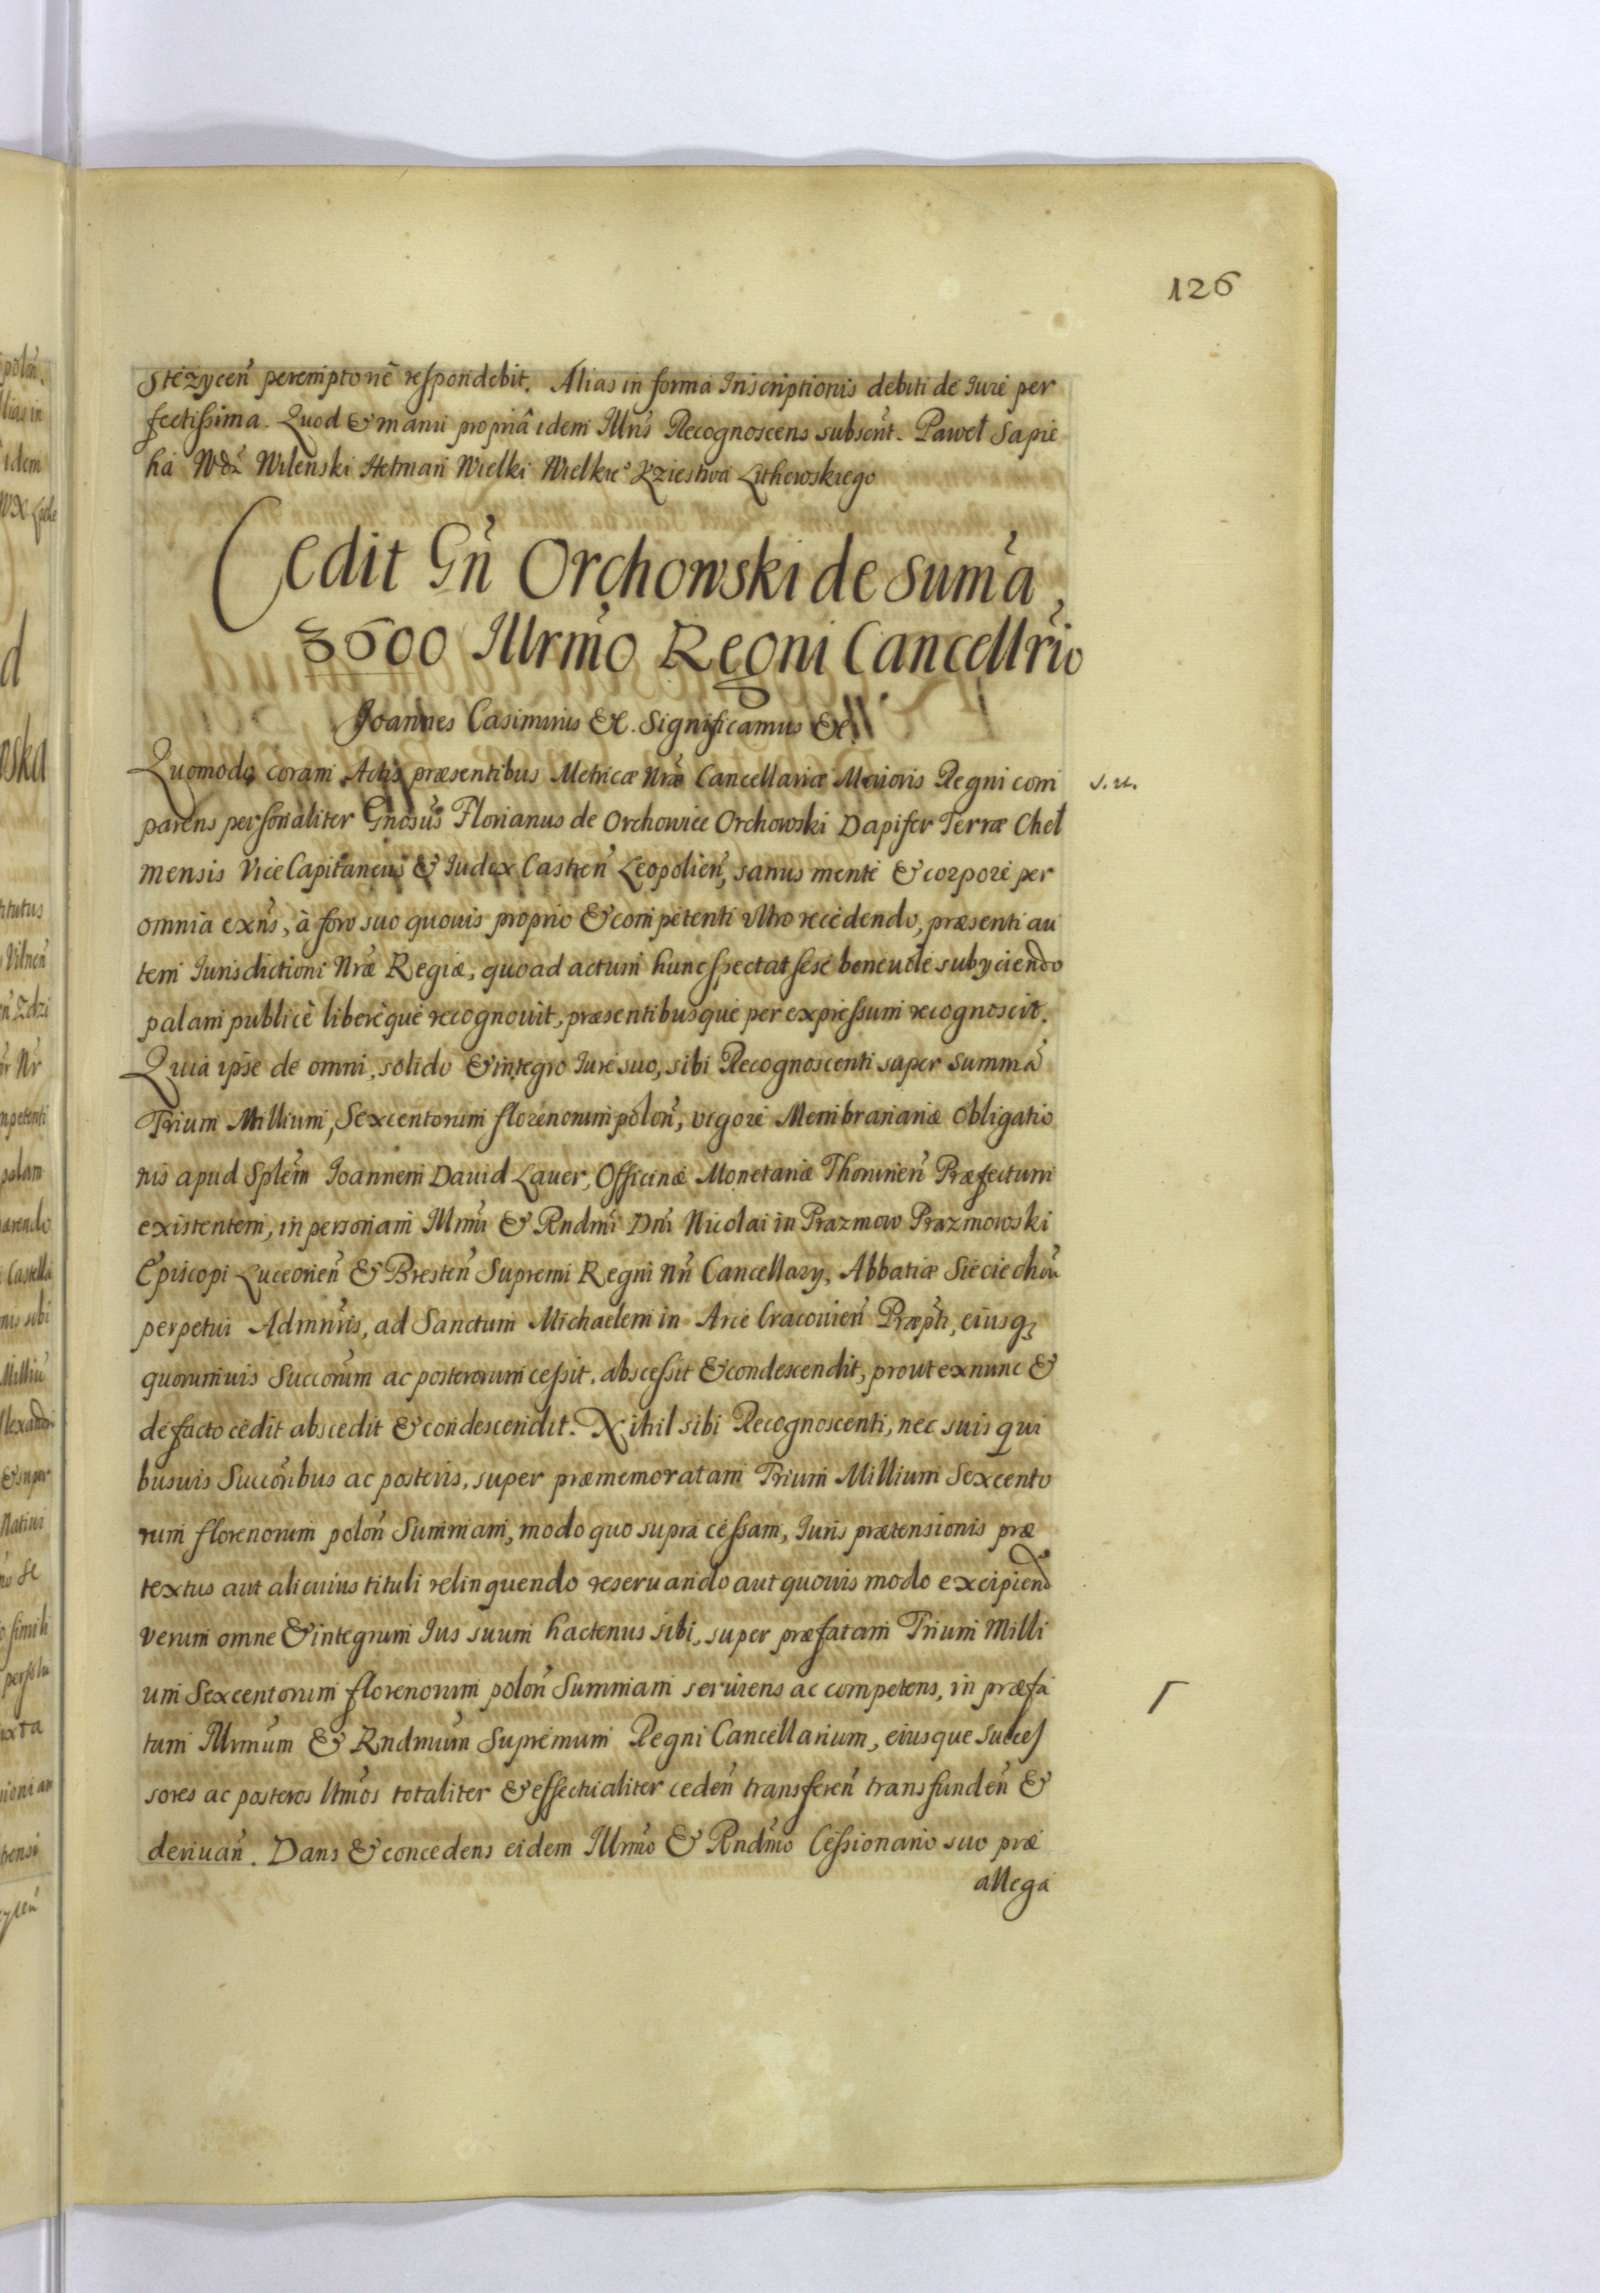 126
Stężyceñ peremptoriè respondebit. Alias in forma Inscriptionis debiti de Iure per
fectissima. Quod & manu propriâ idem Illris Recognoscens subscrit. Paweł Sapie
ha Wdz Wilenski Hetman Wielki Wielkieº Xziestwa Lithewskiego
Cedit Gñ Orchowski de suma
3600 Illrmo Regni Cancellrio
Joannes Casimirus &c. Significamus &c.
Quomodo coram Actis præsentibus Metricæ Nræ Cancellariæ Maioris Regni com
s. n.
parens personaliter Gnosus Florianus de Orchowiec Orchowski Dapifer Terræ Cheł
mensis ViceCapitaneus & Iudex Castreñ Leopolieñ, sanus mente & corpore per
omnia exñs, à foro suo quouis proprio & competenti vltro recedendo, præsenti au
tem Iurisdictioni Nræ Regiæ, quoad actum hunc spectat sese beneuole subyciendo
palam publicè liberèque recognouit, præsentibusque per expressum recognoscit.
Quia ipse de omni, solido & integro Iure suo, sibi Recognoscenti super Summa
Trium Millium, Sexcentorum florenorum poloñ, vigore Membranaræ Obligatio
nis apud Splem Ioannem Dauid Lauer, Officinæ Monetariæ Thoruneñ Præfectum
existentem, in personam Illrmi & Rndmi Dni Nicolai in Prazmow Prazmowski
Episcopi Lucceorieñ & Bresteñ Supremi Regni Nri Cancellary, Abbatiæ Sieciechou
perpetui Admnris, ad Sanctum Michaelem in Arce Cracouieñ Præpti, eiusq3
quorumuis Succorum ac posterorum cessit, abscessit & condescendit, prout ex nunc &
de facto cedit abscedit & condescendit. Nihil sibi Recognoscenti, nec suis qui
busuis Succoribus ac posteris, super præmemoratam Trium Millium Sexcento
rum florenorum poloñ Summam, modo quo supra cessam, Iuris prætensionis præ
textus aut alicuius tituli relinquendo reseruando aut quouis modo excipiend
verum omne & integrum Ius suum hactenus sibi, super præfatam Trium Milli
um Sexcentorum florenorum poloñ Summam seruiens ac competens, in præfa
tum Illrmum & Rndmum Supremum Regni Cancellarium, eiusque Succes
sores ac posteros ltmos totaliter & effectualiter cedeñ transfereñ transfundeñ &
deriuañ. Dans & concedens eidem Illrmo & Rndmo Cessionario suo præ
allega